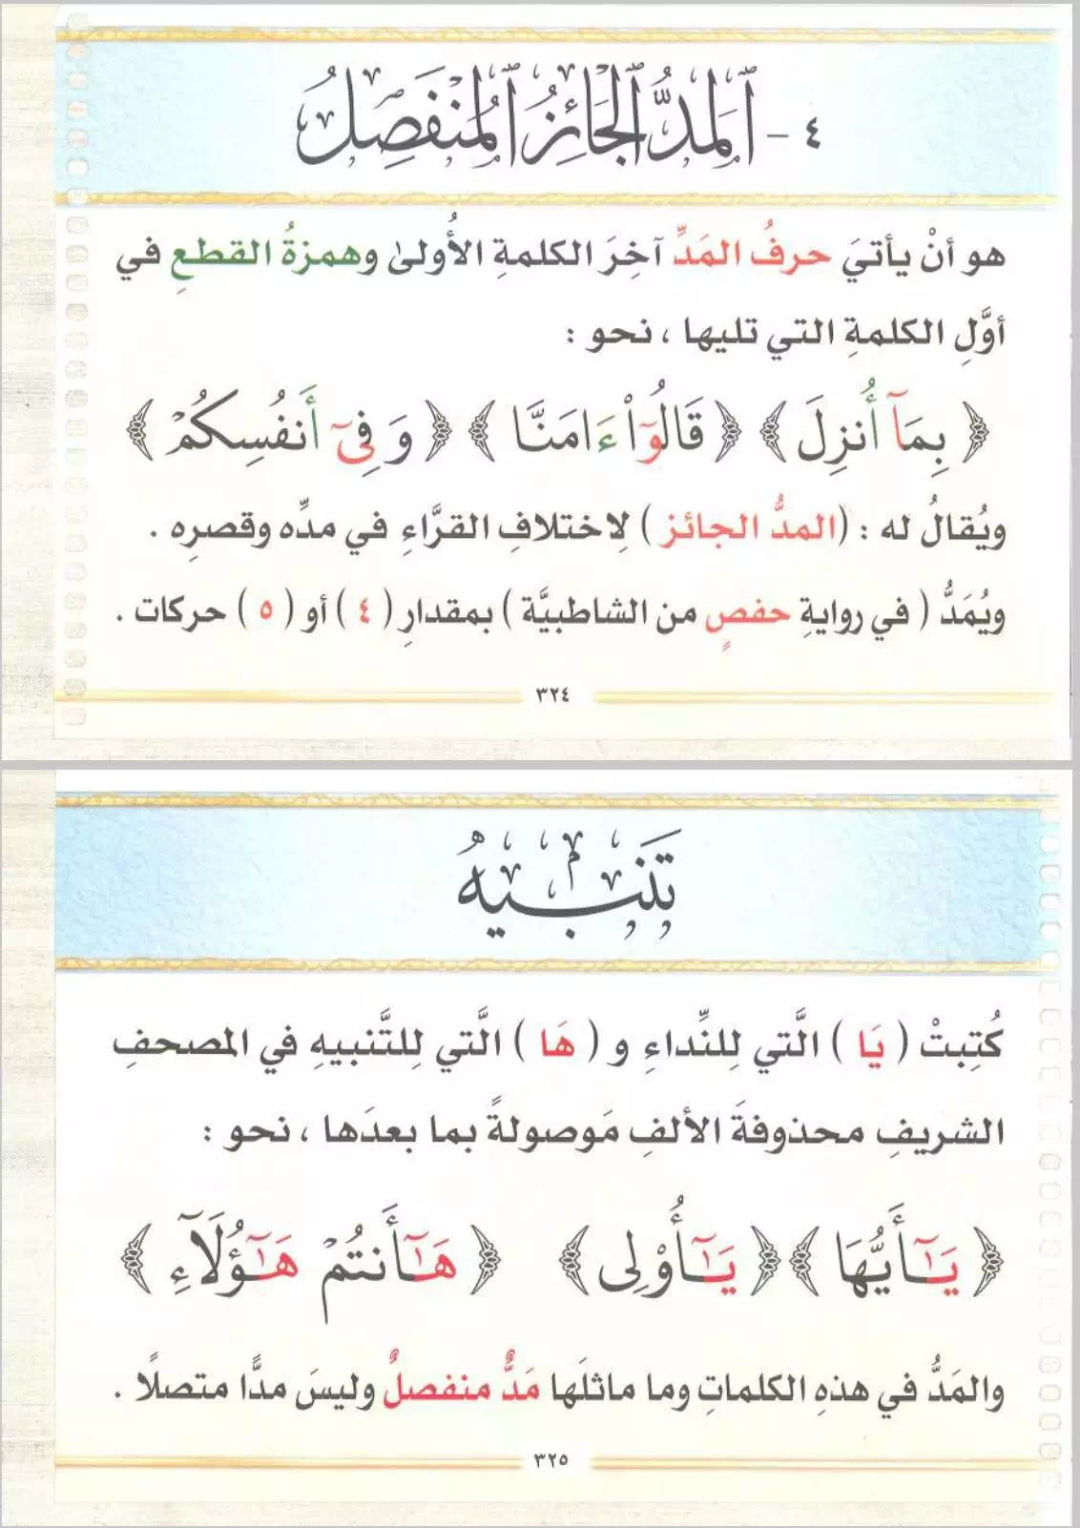 ٤ - ٱلمَدُّ ٱلجَائِزُ ٱلمُنْفَصِلُ
هو أنْ يأتيَ حرفُ المَدِّ آخِرَ الكلمةِ الأُولىٰ وهمزةُ القطعِ في
أوَّلِ الكلمةِ التي تليها ، نحو :
﴿ بِمَآ أُنزِلَ ﴾ ﴿ قَالُوٓاْ ءَامَنَّا ﴾ ﴿ وَفِىٓ أَنفُسِكُمْ ﴾
ويُقالُ له : (المدُّ الجائز ) لِاختلافِ القرَّاءِ في مدِّه وقصرِه .
ويُمَدُّ ( في روايةِ حفصٍ من الشاطبيَّة ) بمقدارِ ( ٤ ) أو ( ٥ ) حركات .
٣٢٤
تَنْبِيهٌ
كُتِبتْ ( يَا ) الَّتي لِلنِّداءِ و ( هَا ) الَّتي لِلتَّنبيهِ في المصحفِ
الشريفِ محذوفةَ الألفِ مَوصولةً بما بعدَها ، نحو :
﴿ يَـٰٓأَيُّهَا ﴾ ﴿ يَـٰٓأُوْلِى ﴾ ﴿ هَـٰٓأَنتُمْ هَـٰٓؤُلَآءِ ﴾
والمَدُّ في هذهِ الكلماتِ وما ماثلَها مَدٌّ منفصلٌ وليسَ مدًّا متصلًا .
٣٢٥